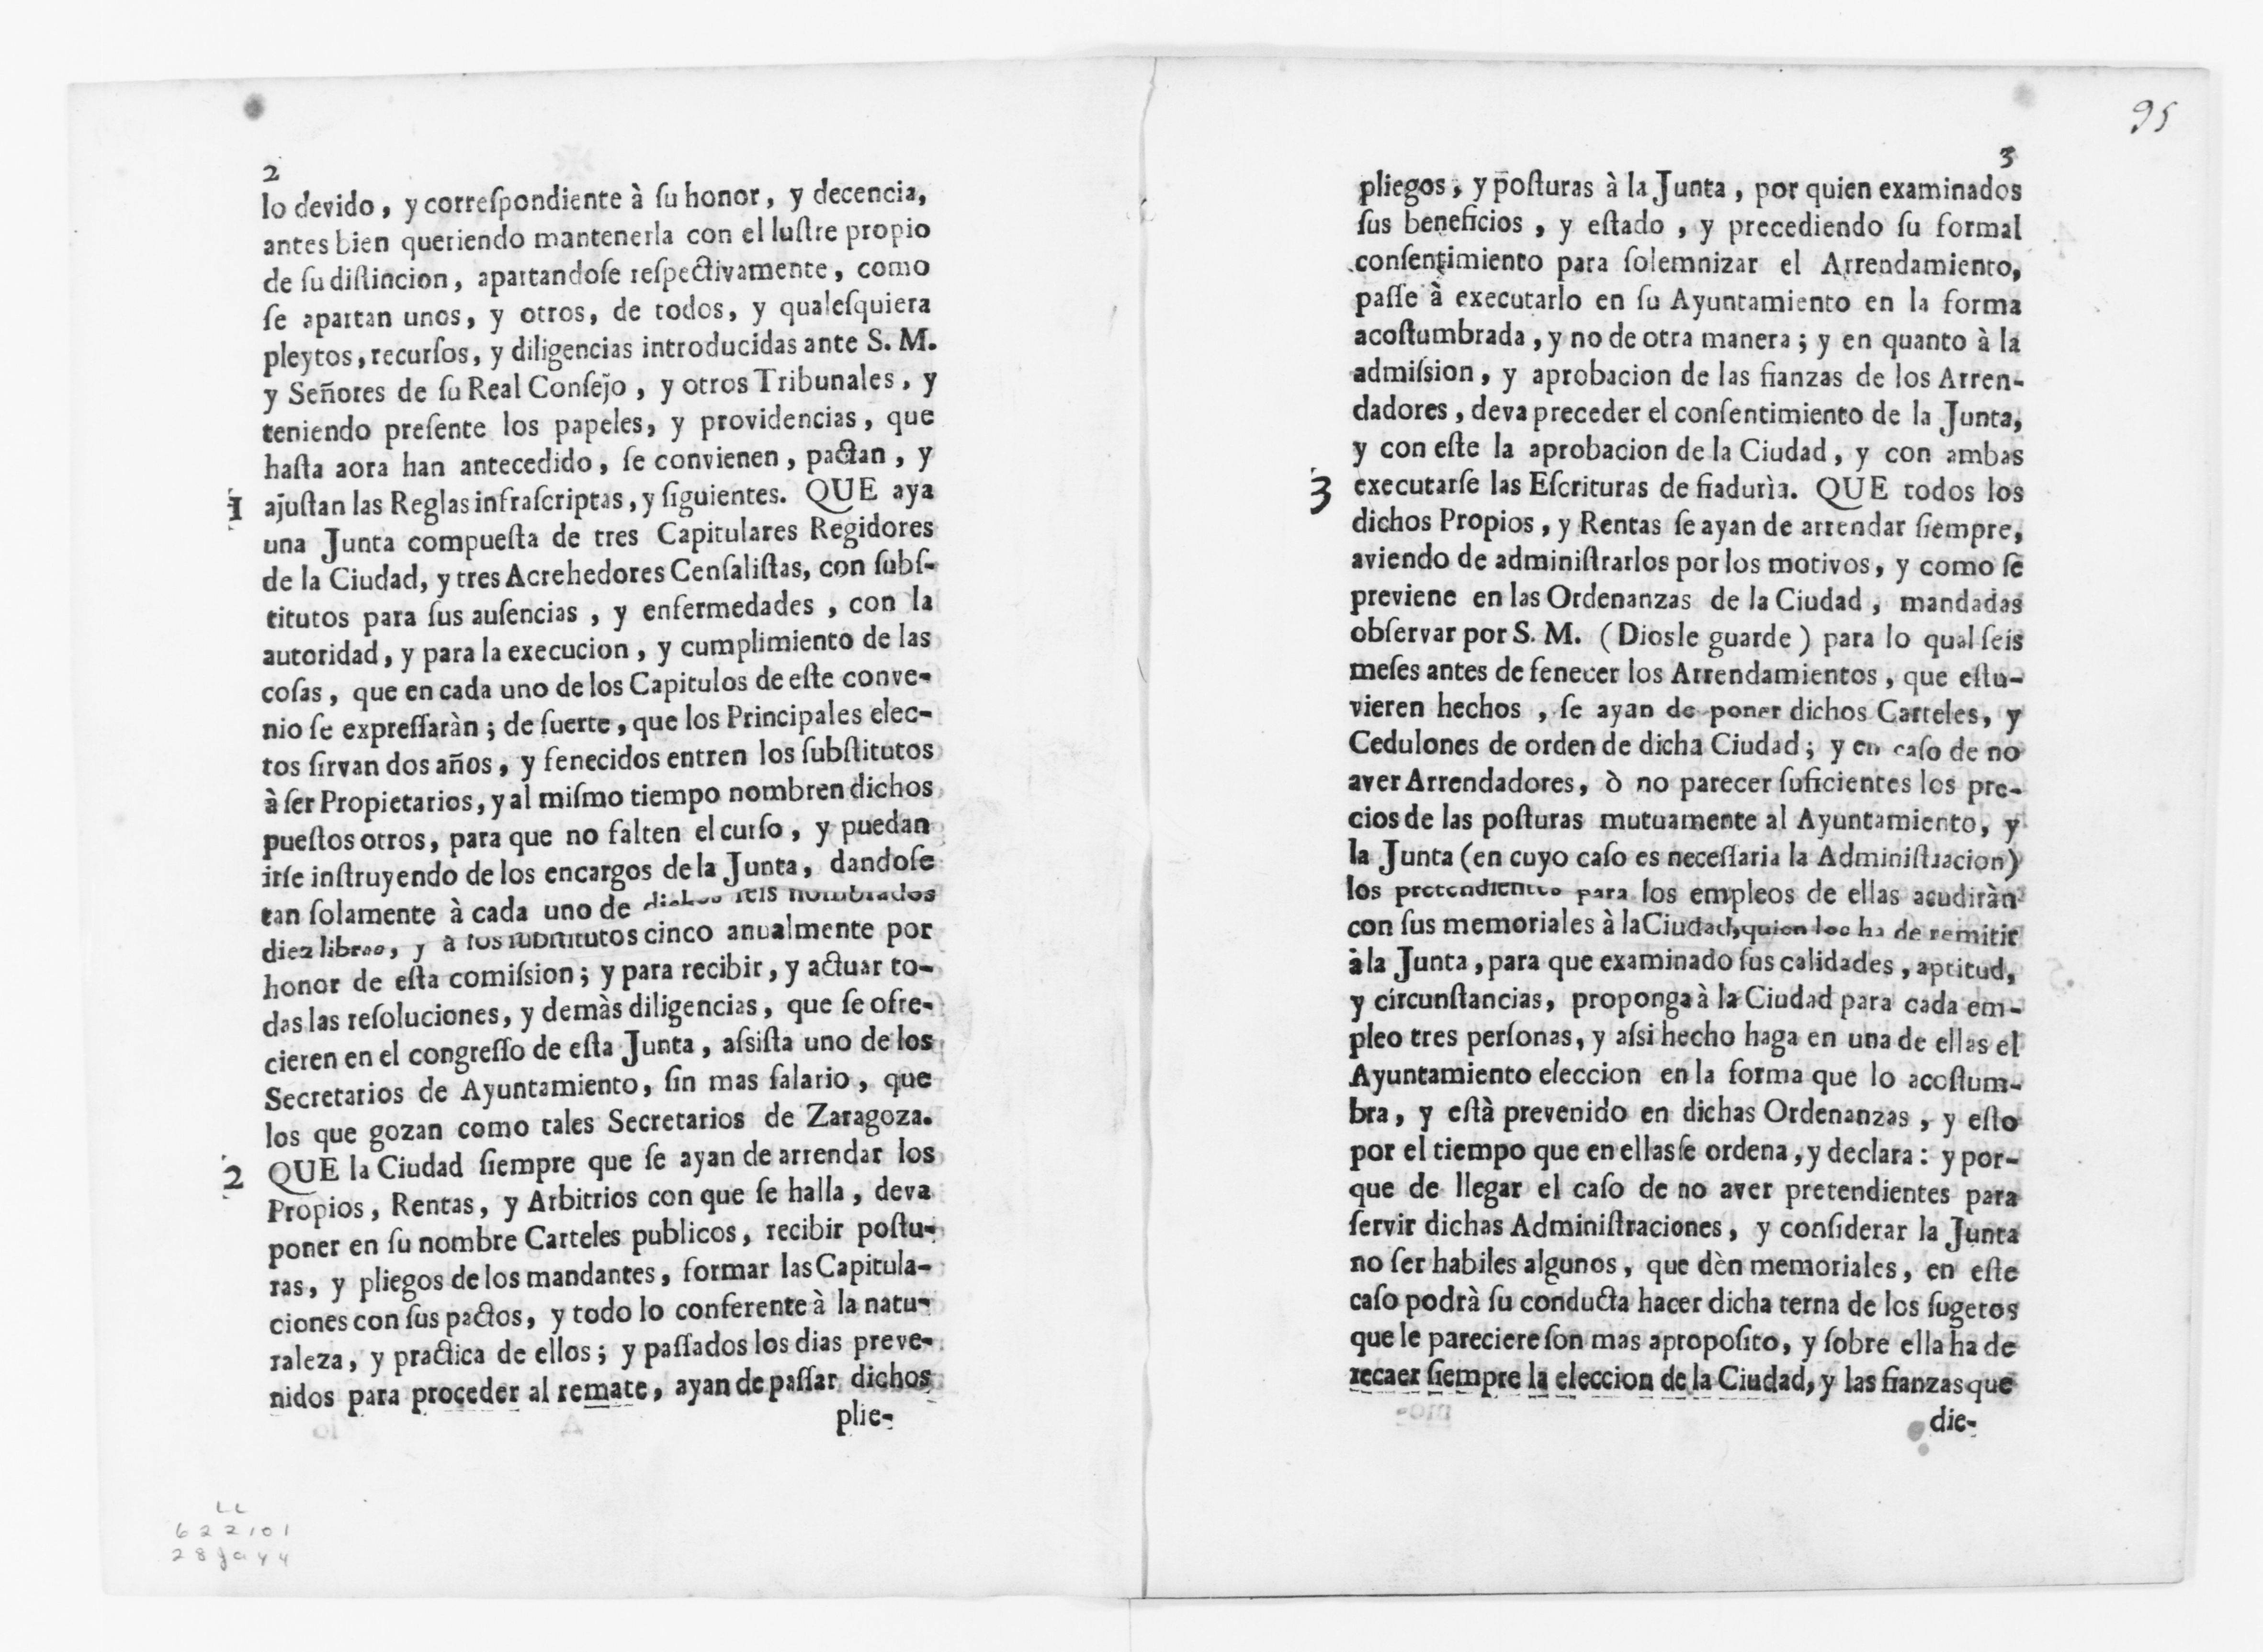 2
lo devido, y correſpondiente à ſu honor, y decencia,
antes bien queriendo mantenerla con el luſtre propio
de ſu diſtincion, apartandoſe reſpectivamente, como
ſe apartan unos, y otros, de todos, y qualeſquiera
pleytos, recurſos, y diligencias introducidas ante S. M.
y Señores de ſu Real Conſejo, y otros Tribunales, y
teniendo preſente los papeles, y providencias, que
haſta aora han antecedido, ſe convienen, pactan, y
1 ajuſtan las Reglas infraſcriptas, y ſiguientes. QUE aya
una Junta compueſta de tres Capitulares Regidores
de la Ciudad, y tres Acrehedores Cenſaliſtas, con ſubſ-
titutos para ſus auſencias, y enfermedades, con la
autoridad, y para la execucion, y cumplimiento de las
coſas, que en cada uno de los Capitulos de eſte conve-
nio ſe expreſſaràn; de ſuerte, que los Principales elec-
tos ſirvan dos años, y fenecidos entren los ſubſtitutos
à ſer Propietarios, y al miſmo tiempo nombren dichos
pueſtos otros, para que no falten el curſo, y puedan
irſe inſtruyendo de los encargos de la Junta, dandoſe
tan ſolamente à cada uno de dichos ſeis nombrados
diez libras, y à los ſubſtitutos cinco anualmente por
honor de eſta comiſsion; y para recibir, y actuar to-
das las reſoluciones, y demàs diligencias, que ſe ofre-
cieren en el congreſſo de eſta Junta, aſsiſta uno de los
Secretarios de Ayuntamiento, ſin mas ſalario, que
los que gozan como tales Secretarios de Zaragoza.
2 QUE la Ciudad ſiempre que ſe ayan de arrendar los
Propios, Rentas, y Arbitrios con que ſe halla, deva
poner en ſu nombre Carteles publicos, recibir poſtu-
ras, y pliegos de los mandantes, formar las Capitula-
ciones con ſus pactos, y todo lo conferente à la natu-
raleza, y practica de ellos; y paſſados los dias preve-
nidos para proceder al remate, ayan de paſſar dichos
plie-
LL
622101
28 Ja 44
95
3
pliegos, y poſturas à la Junta, por quien examinados
ſus beneficios, y eſtado, y precediendo ſu formal
conſentimiento para ſolemnizar el Arrendamiento,
paſſe à executarlo en ſu Ayuntamiento en la forma
acoſtumbrada, y no de otra manera; y en quanto à la
admiſsion, y aprobacion de las fianzas de los Arren-
dadores, deva preceder el conſentimiento de la Junta,
y con eſte la aprobacion de la Ciudad, y con ambas
3 executarſe las Eſcrituras de fiadurìa. QUE todos los
dichos Propios, y Rentas ſe ayan de arrendar ſiempre,
aviendo de adminiſtrarlos por los motivos, y como ſe
previene en las Ordenanzas de la Ciudad, mandadas
obſervar por S. M. (Dios le guarde) para lo qual ſeis
meſes antes de fenecer los Arrendamientos, que eſtu-
vieren hechos, ſe ayan de poner dichos Carteles, y
Cedulones de orden de dicha Ciudad; y en caſo de no
aver Arrendadores, ò no parecer ſuficientes los pre-
cios de las poſturas mutuamente al Ayuntamiento, y
la Junta (en cuyo caſo es neceſſaria la Adminiſtracion)
los pretendientes para los empleos de ellas acudiràn
con ſus memoriales à la Ciudad, quien los ha de remitir
à la Junta, para que examinado ſus calidades, aptitud,
y circunſtancias, proponga à la Ciudad para cada em-
pleo tres perſonas, y aſsi hecho haga en una de ellas el
Ayuntamiento eleccion en la forma que lo acoſtum-
bra, y eſtà prevenido en dichas Ordenanzas, y eſto
por el tiempo que en ellas ſe ordena, y declara: y por-
que de llegar el caſo de no aver pretendientes para
ſervir dichas Adminiſtraciones, y conſiderar la Junta
no ſer habiles algunos, que dèn memoriales, en eſte
caſo podrà ſu conducta hacer dicha terna de los ſugetos
que le pareciere ſon mas apropoſito, y ſobre ella ha de
recaer ſiempre la eleccion de la Ciudad, y las fianzas que
die-